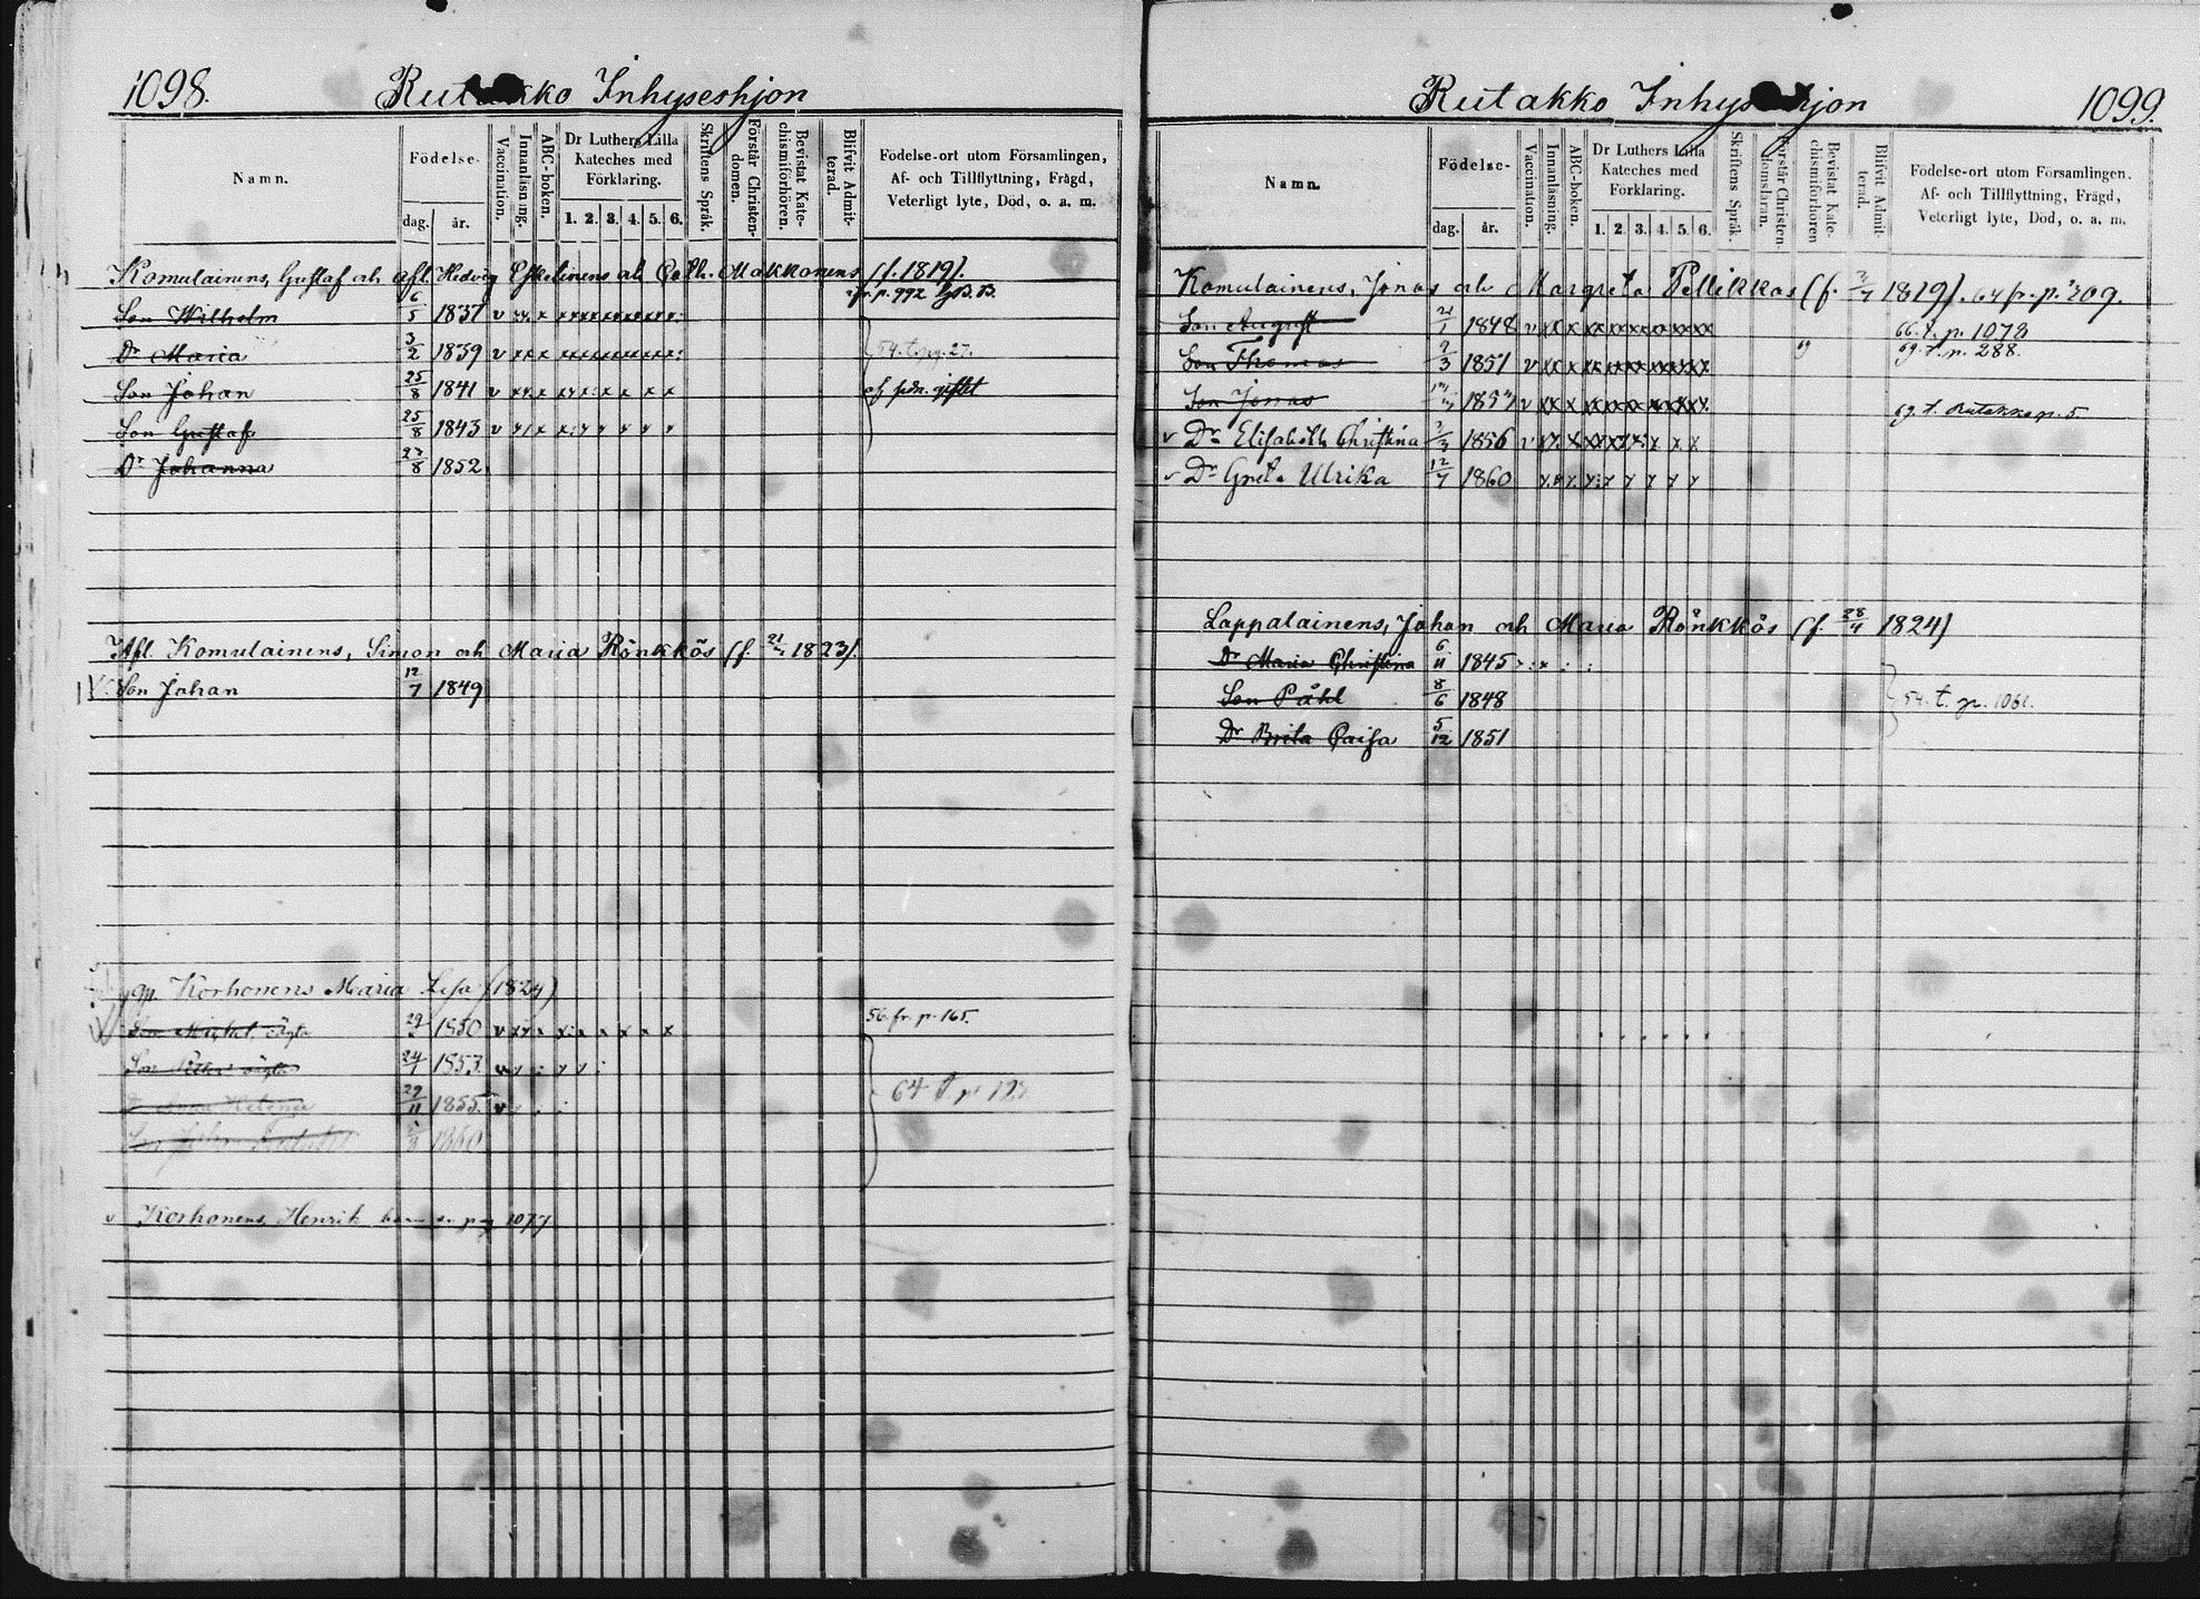 1098.
Rutakko Inhyseshjon
Namn.
Födelse-
dag. år.
Vaccination.
Innanläsning.
ABC-boken.
Dr Luthers Lilla
Kateches med
Förklaring.
1. 2. 3. 4. 5. 6.
Skriftens Språk.
Förstår Christen-
domen.
Bevistat Kate-
chismiförhören.
Blifvit Admit-
terad.
Födelse-ort utom Församlingen,
Af- och Tillflyttning, Frägd,
Veterligt lyte, Död, o. a. m.
Komulainens, Gustaf och afl. Hedvig Eskelinens och Cath. Makkonens (f. 1819).
fr. p. 992
Son Wilhelm 6/5 1837 v
Dr Maria 3/2 1839 v
Son Johan 25/8 1841 v
Son Gustaf 25/8 1843 v
Dr Johanna 27/8 1852
Afl. Komulainens, Simon och Maria Rönkkös (f. 1823).
Son Johan 12/7 1849
Korhonens Maria Lisa (1824)
56 fr. p. 165.
Son Michel 1850 v
Son 24/1 1853
29/11 1855 v
1860
64 t. p.
v Korhonens, Henrik barn se pag 1077
Rutakko Inhyseshjon
1099.
Namn.
Födelse-
dag. år.
Vaccination.
Innanläsning.
ABC-boken.
Dr Luthers Lilla
Kateches med
Förklaring.
1. 2. 3. 4. 5. 6.
Skriftens Språk.
Förstår Christen-
domsläran.
Bevistat Kate-
chismiförhören
Blifvit Admit-
terad.
Födelse-ort utom Församlingen.
Af- och Tillflyttning, Frägd,
Veterligt lyte, Död, o. a. m.
Komulainens, Jonas och Margreta Pellikkas (f. 1819). 64 fr. p. 309.
Son August 1848 v 66. t. p. 1078
Son Thomas 1851 v 69. t. p. 288.
Son Jonas v 69. t. Rutakko p. 5
v Dr Elisabeth Christina 1856 v
v Dr Greta Ulrika 12/7 1860
Lappalainens, Johan och Maria Rönkkös (f. 28/4 1824)
Dr Maria Christina 6/11 1845
Son Påhl 8/6 1848
54. t. p. 1061.
Dr Brita Caisa 5/12 1851